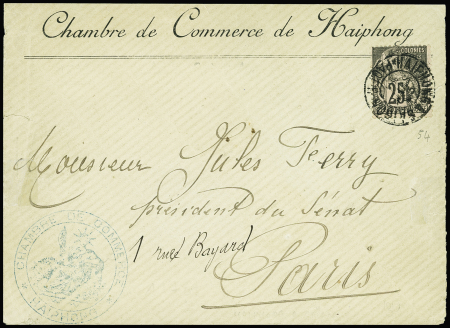 Chambre de Commerce de Haiphong
COLONIES
HAIPHONG
25
54
Monsieur Jules Ferry
président du Sénat
1 rue Bayard
Paris
CHAMBRE DE COMMERCE
HAIPHONG